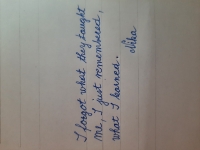 I forgot what they taught
me, I just remembered,
what I learned.
Neha